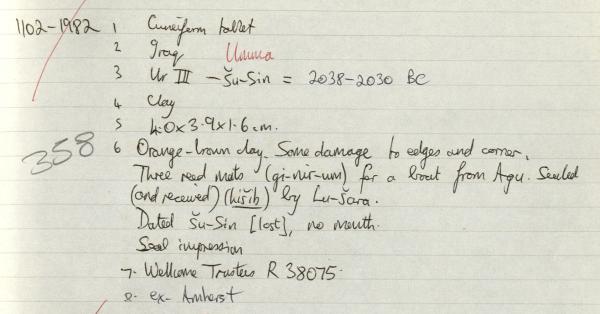 1102-1982 1 Cuneiform tablet
2 Iraq Umma
3 Ur III - Šu-Sin = 2038-2030 BC
4 Clay
5 4.0x3.9x1.6 cm.
358
6 Orange-brown clay. Some damage to edges and corner.
Three reed mats (gi-nir-um) for a boat from Agu. Sealed
(and received) (kišib) by Lu-Šara.
Dated Šu-Sin [lost], no month.
Seal impression
7. Wellcome Trustees R 38075.
8. ex- Amherst